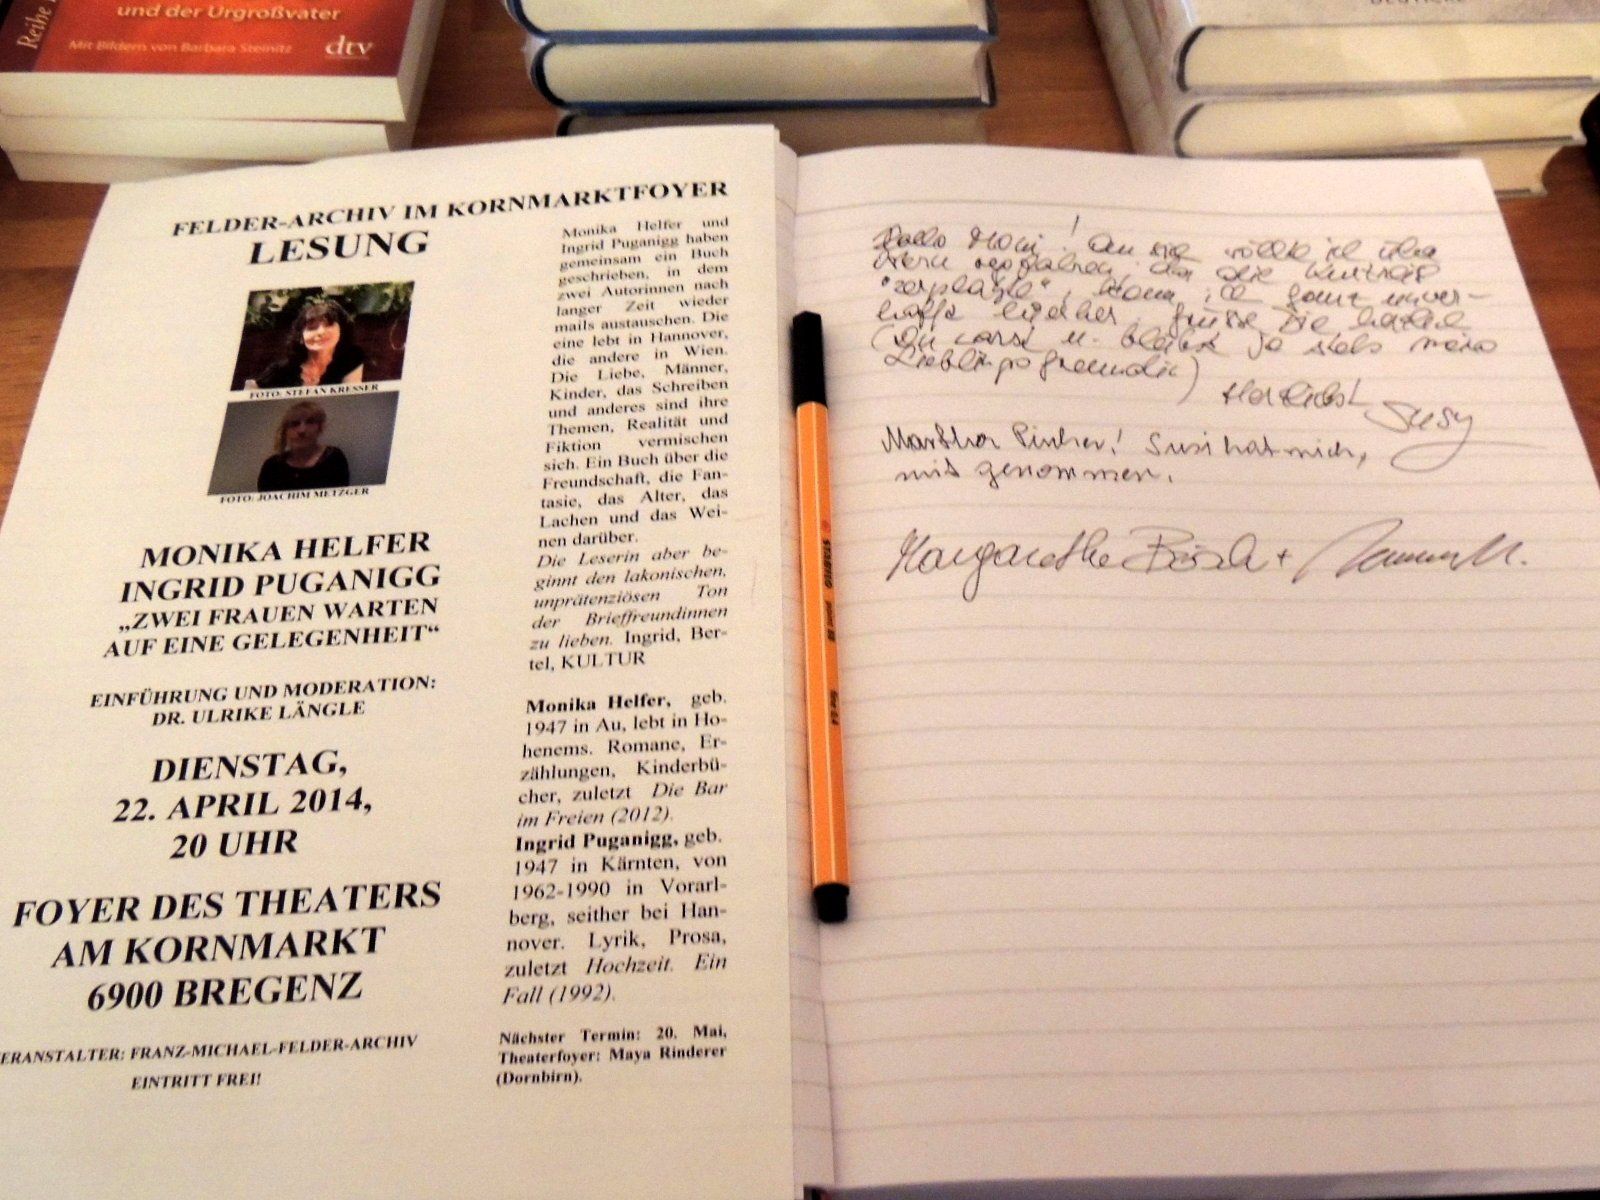 und der Urgroßvater
Mit Bildern von Barbara Steinitz
dtv
Reihe
FELDER-ARCHIV IM KORNMARKTFOYER
LESUNG
FOTO: STEFAN KRESSER
FOTO: JOACHIM METZGER
MONIKA HELFER
INGRID PUGANIGG
„ZWEI FRAUEN WARTEN
AUF EINE GELEGENHEIT“
EINFÜHRUNG UND MODERATION:
DR. ULRIKE LÄNGLE
DIENSTAG,
22. APRIL 2014,
20 UHR
FOYER DES THEATERS
AM KORNMARKT
6900 BREGENZ
ERANSTALTER: FRANZ-MICHAEL-FELDER-ARCHIV
EINTRITT FREI!
Monika Helfer und
Ingrid Puganigg haben
gemeinsam ein Buch
geschrieben, in dem
zwei Autorinnen nach
langer Zeit wieder
mails austauschen. Die
eine lebt in Hannover,
die andere in Wien.
Die Liebe, Männer,
Kinder, das Schreiben
und anderes sind ihre
Themen, Realität und
Fiktion vermischen
sich. Ein Buch über die
Freundschaft, die Fan-
tasie, das Alter, das
Lachen und das Wei-
nen darüber.
Die Leserin aber be-
ginnt den lakonischen,
unprätenziösen Ton
der Brieffreundinnen
zu lieben. Ingrid, Ber-
tel, KULTUR
Monika Helfer, geb.
1947 in Au, lebt in Ho-
henems. Romane, Er-
zählungen, Kinderbü-
cher, zuletzt Die Bar
im Freien (2012).
Ingrid Puganigg, geb.
1947 in Kärnten, von
1962-1990 in Vorarl-
berg, seither bei Han-
nover. Lyrik, Prosa,
zuletzt Hochzeit. Ein
Fall (1992).
Nächster Termin: 20. Mai,
Theaterfoyer: Maya Rinderer
(Dornbirn).
STABILO point 88
Hallo Moni! An sich wollte ich über
Ostern da die
"zerplatzte", ich ganz unver-
hofft hierher, grüsse Die
(Du warst u. bleibst ja stets meine
Lieblingsfreundin)
Herzlichst
Susy
Martha Susi hat mich,
mit genommen.
Margarethe +